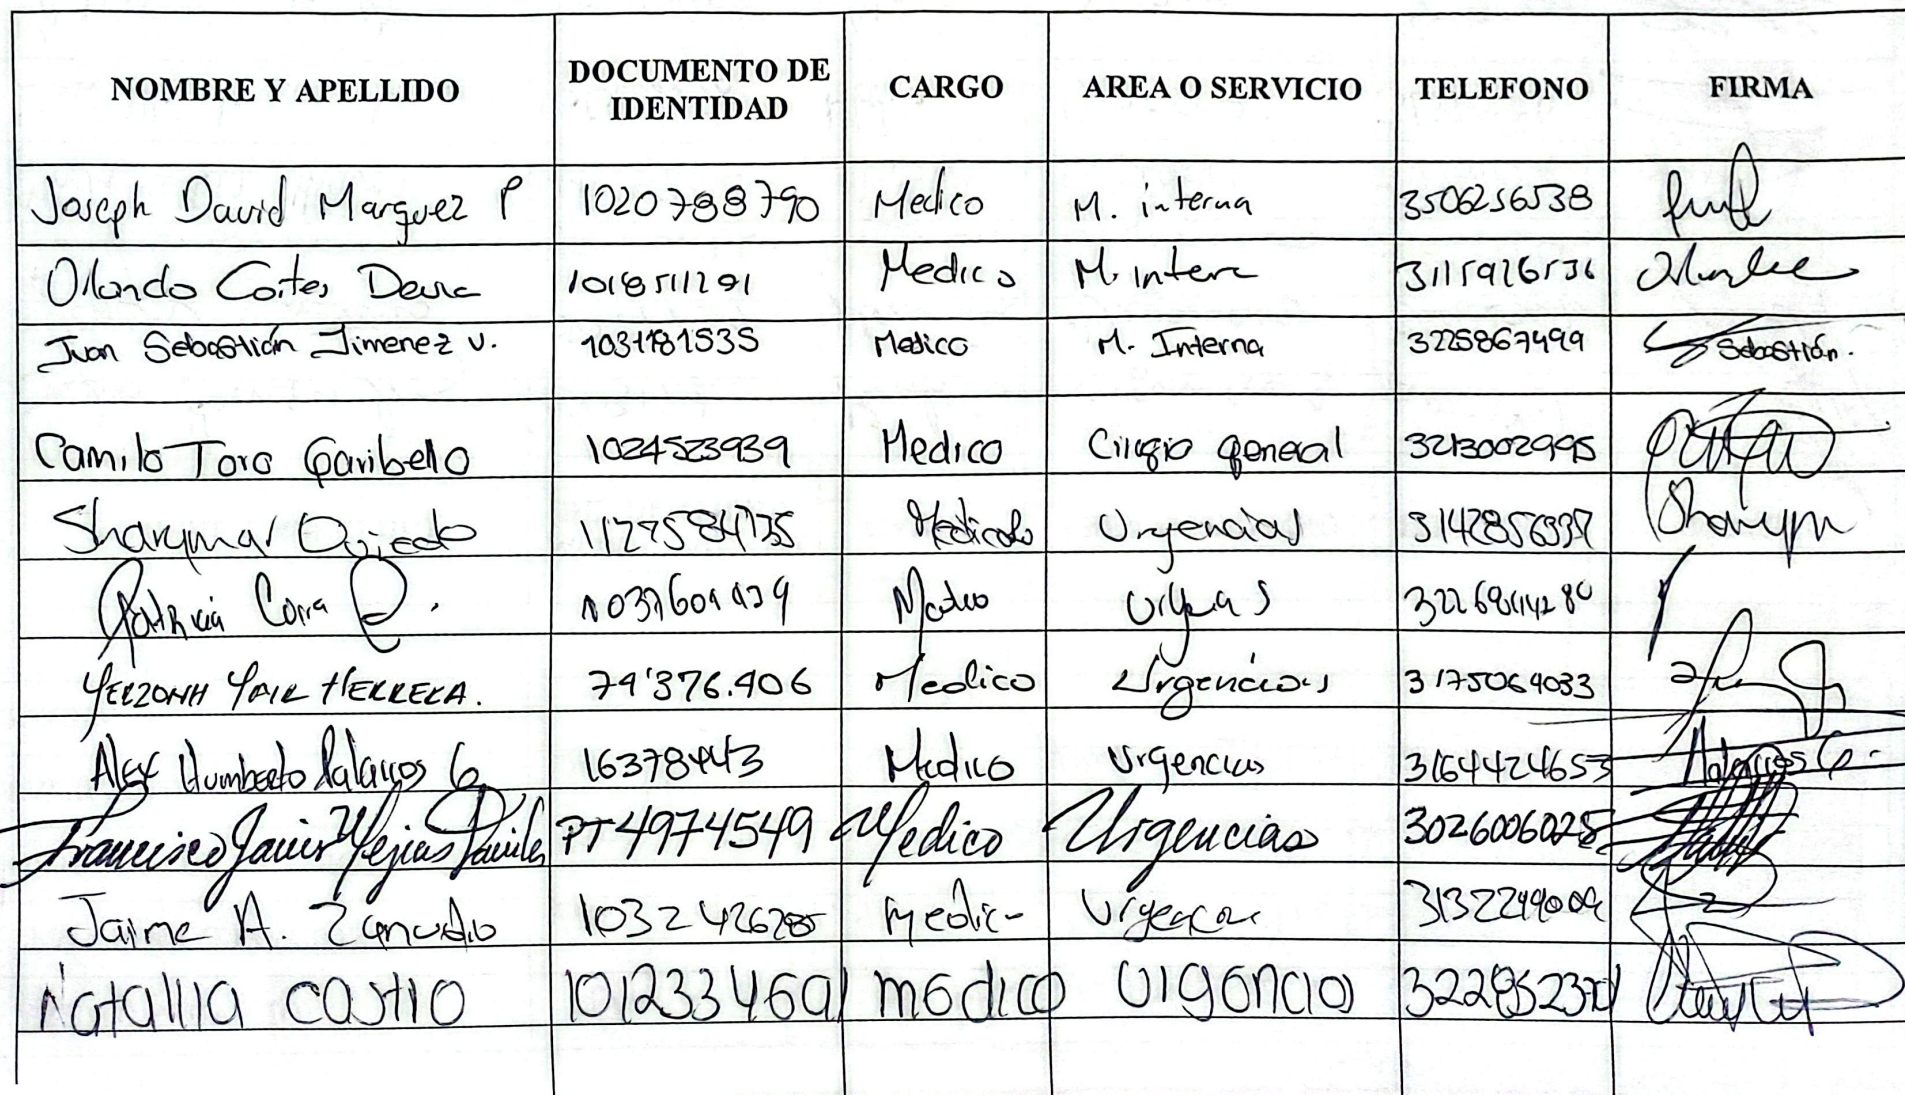 NOMBRE Y APELLIDO DOCUMENTO DE IDENTIDAD CARGO AREA O SERVICIO TELEFONO FIRMA
Joseph David Marquez P 1020788790 Medico M. interna 3506256538
Orlando Cortes 1018511291 Medico M. Intern 3115926536
Juan Sebastián Jimenez v. 1031181535 Medico M. Interna 3225867499 Sebastián.
Camilo Toro Garibello 1024523939 Medico Cirugia general 3213002995
Sharymar Oviedo Urgencias Sharym
Medico
YERZONH YAIR HERRERA. 79'376.406 Medico Urgencias 3175064033
Alex Humberto Palacios G 16378443 Medico Urgencias 3164424653 Palacios G.
Francisco Javier Mejias PT4974549 Medico Urgencias 3026006028
Jaime A. Zamudio 1032426285 Medic
Natallia castro 1012334601 medico urgencias